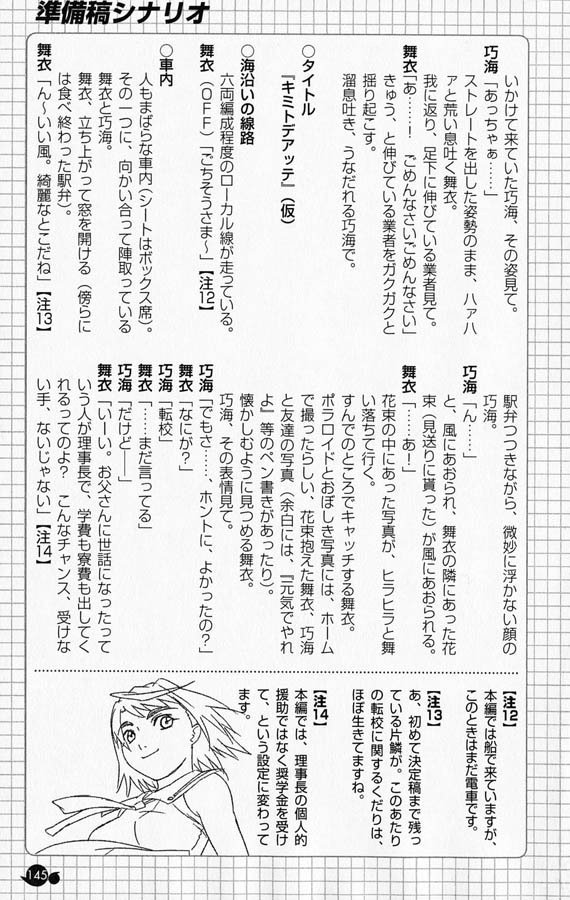 準備稿シナリオ
いかけて来ていた巧海、その姿見て。
巧海「あっちゃぁ……」
ストレートを出した姿勢のまま、ハァハ
ァと荒い息吐く舞衣。
我に返り、足下に伸びている業者見て。
舞衣「あ……！　ごめんなさいごめんなさい」
きゅう、と伸びている業者をガクガクと
揺り起こす。
溜息吐き、うなだれる巧海で。
○タイトル
『キミトデアッテ』（仮）
○海沿いの線路
六両編成程度のローカル線が走っている。
舞衣（OFF）「ごちそうさま～」【注12】
○車内
人もまばらな車内（シートはボックス席）。
その一つに、向かい合って陣取っている
舞衣と巧海。
舞衣、立ち上がって窓を開ける（傍らに
は食べ終わった駅弁）。
舞衣「ん～いい風。綺麗なとこだね」【注13】
駅弁つつきながら、微妙に浮かない顔の
巧海。
巧海「ん……」
と、風にあおられ、舞衣の隣にあった花
束（見送りに貰った）が風にあおられる。
舞衣「……あ！」
花束の中にあった写真が、ヒラヒラと舞
い落ちて行く。
すんでのところでキャッチする舞衣。
ポラロイドとおぼしき写真には、ホーム
で撮ったらしい、花束抱えた舞衣、巧海
と友達の写真（余白には、『元気でやれ
よ』等のペン書きがあったり）。
懐かしむように見つめる舞衣。
巧海、その表情見て。
巧海「でもさ……、ホントに、よかったの？」
舞衣「なにが？」
巧海「転校」
舞衣「……まだ言ってる」
巧海「だけど――」
舞衣「いーい。お父さんに世話になったって
いう人が理事長で、学費も寮費も出してく
れるってのよ？　こんなチャンス、受けな
い手、ないじゃない」【注14】
【注12】
本編では船で来ていますが、
このときはまだ電車です。
【注13】
あ、初めて決定稿まで残っ
ている片鱗が。このあたり
の転校に関するくだりは、
ほぼ生きてますね。
【注14】
本編では、理事長の個人的
援助ではなく奨学金を受け
て、という設定に変わって
ます。
145